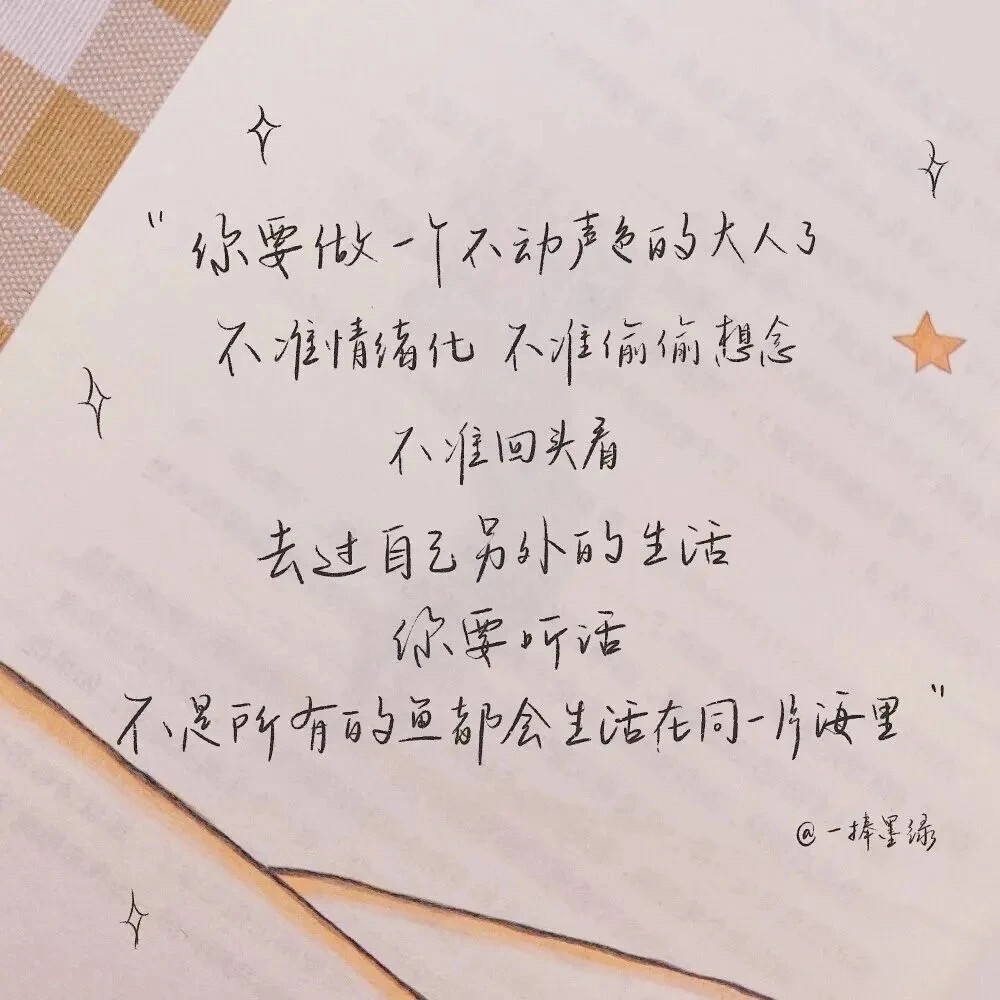 “你要做一个不动声色的大人了
不准情绪化 不准偷偷想念
不准回头看
去过自己另外的生活
你要听话
不是所有的鱼都会生活在同一片海里”
@一捧墨绿